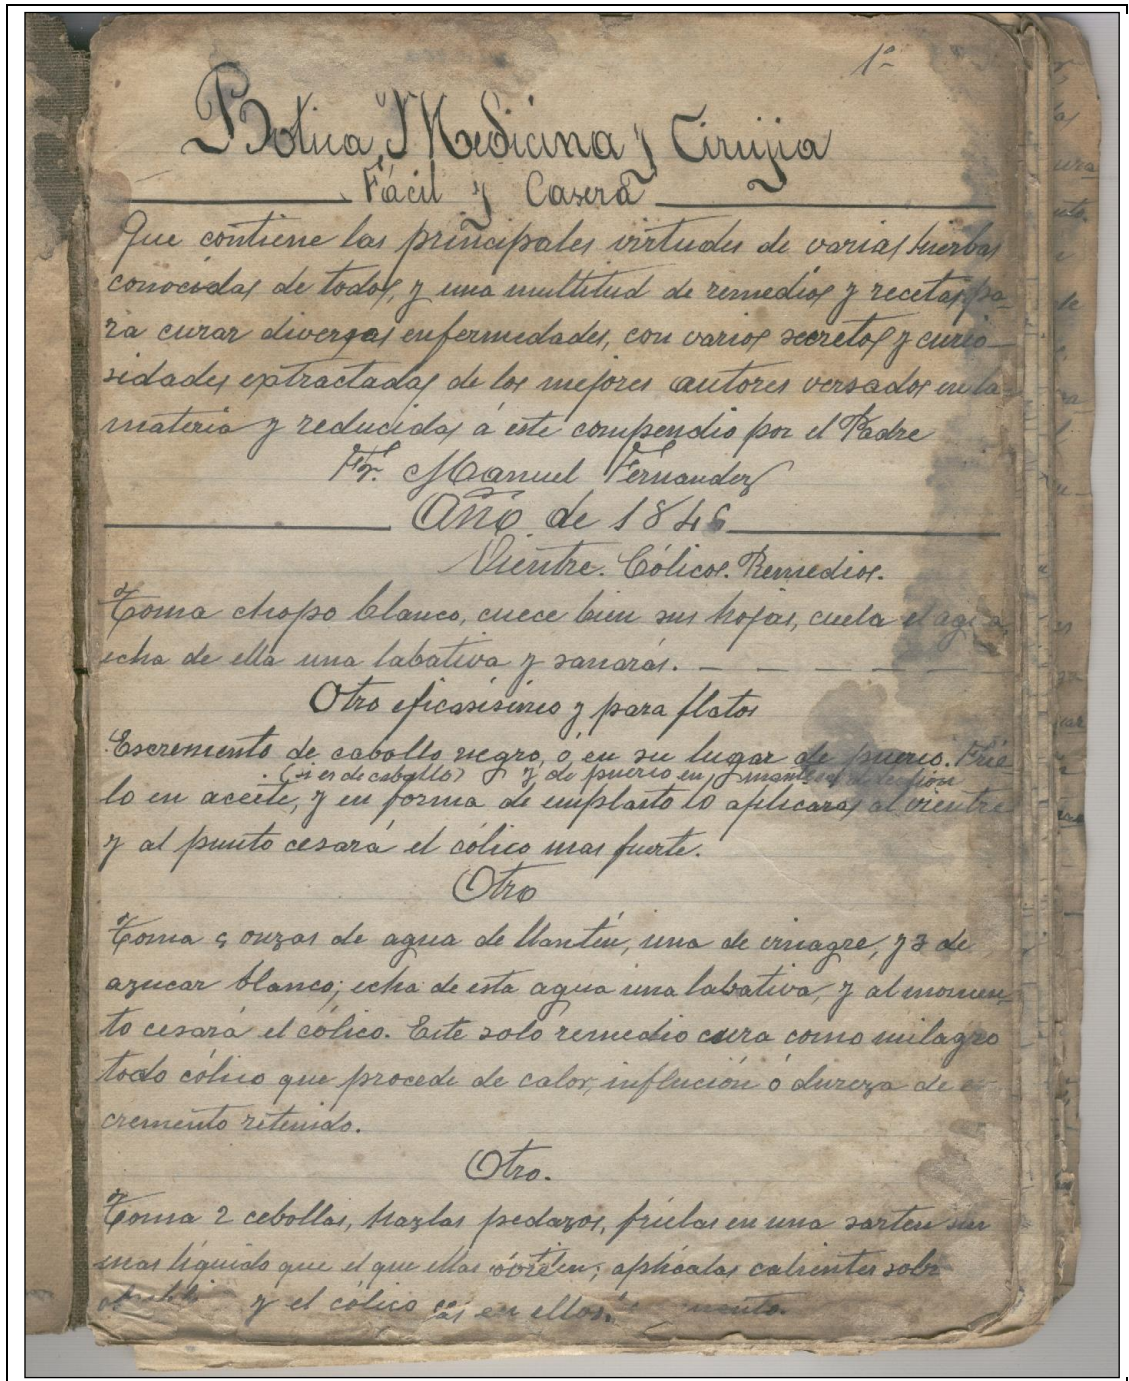 1º
Botica, Medicina y Cirujia
Fácil y Casera
Que contiene las principales virtudes de varias hierbas
conocidas de todos, y una multitud de remedios y recetas pa-
ra curar diversas enfermedades, con varios secretos y curio-
sidades extractadas de los mejores autores versados en la
materia y reducidas á este compendio por el Padre
Fr. Manuel Fernandez
Año de 1846
Vientre. Cólicos. Remedios.
Toma chopo blanco, cuece bien sus hojas, cuela el agua,
echa de ella una labativa y sanarás.
Otro eficasisimo y para flatos
Escremento de caballo negro, ó en su lugar de puerco. Frie
(si es de caballo) y de puerco en manteca
lo en aceite, y en forma de emplasto lo aplicarás al vientre
y al punto cesará el cólico mas fuerte.
Otro
Toma 5 onzas de agua de llantén, una de vinagre, y 3 de
azucar blanco; echa de esta agua una labativa, y al momen-
to cesará el cólico. Este solo remedio cura como milagro
todo cólico que procede de calor, influción ó dureza de
cremento retenido.
Otro.
Toma 2 cebollas, hazlas pedazos, frielas en una sarten sin
mas líquido que el que ellas; aplicalas calientes sobre
y el cólico